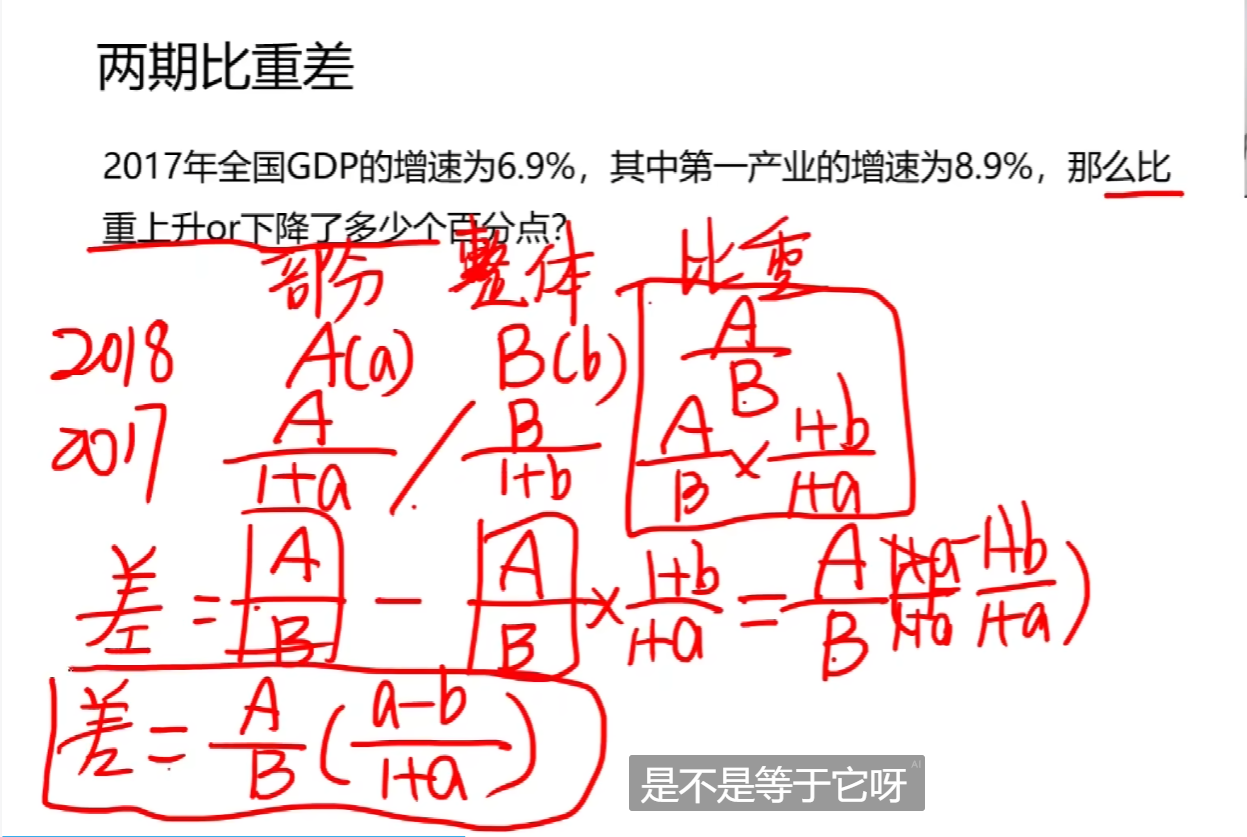 两期比重差
2017年全国GDP的增速为6.9%，其中第一产业的增速为8.9%，那么比
重上升or下降了多少个百分点？
部分 整体 比重
2018 A(a) B(b) A/B
2017 A/1+a / B/1+b A/B × 1+b/1+a
差 = A/B - A/B × 1+b/1+a = A/B (1+a/1+a - 1+b/1+a)
差 = A/B (a-b/1+a)
是不是等于它呀 AI